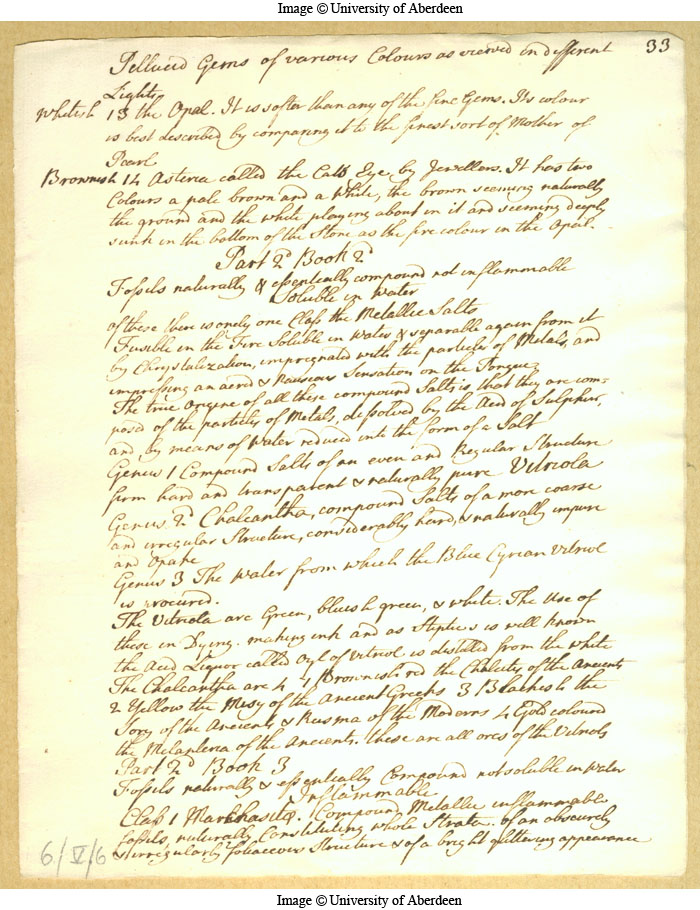 Image © University of Aberdeen
33
Pellucid Gems of various Colours as viewed in different
Lights
Whitish 13 the Opal. It is softer than any of the fine Gems. Its colour
is best described by comparing it to the finest sort of Mother of
Pearl
Brownish 14 Asteria called the Catts Eye by Jewellers. It has two
Colours a pale brown and a White, the brown seeming naturally
the ground and the white playing about in it and seeming deeply
sunk in the bottom of the Stone as the fire colour in the Opal.
Part 2d Book 2d
Fossils naturally & essentially compound not inflammable
Soluble in Water
of these there is onely one Class the Metallic Salts
Fusible in the Fire Soluble in Water & separable again from it
by Chrystalization, impregnated with the particles of Metals, and
impressing an acrid & Nauseous Sensation on the Tongue
The true Origine of all these compound Salts is that they are com-
posed of the particles of Metals, dissolved by the Acid of Sulphur,
and by means of Water reduced into the form of a Salt
Genus 1 Compound Salts of an even and Regular Structure
firm hard and transparent & naturally pure Vitriola
Genus 2d Chalcantha, compound Salts of a more coarse
and irregular Structure, considerably hard, & naturally impure
and Opake
Genus 3 The Water from which the Blue Cyrian Vitriol
is procured.
The Vitriola are Green, bluish green, & white. The Use of
these in Dying. making ink and as Stiptics is well known
the Acid Liquor called Oyl of Vitriol is distilled from the white
The Chalcantha are 4 1 Brownish red the Chalcitis of the Ancients
2 Yellow the Misy of the Ancient Greeks 3 Blackish the
Sory of the Ancients & Rusma of the Moderns 4 Gold coloured
the Melanteria of the Ancients. these are all ores of the Vitriols
Part 2d Book 3
Fossils naturally & essentially Compound not soluble in Water
Inflammable
Class 1 Markhasitæ. Compound Metallic inflammable
fossils, naturally Constituting whole Strata. of an obscurely
& irregularly foliaceous Structure & of a bright glittering appearance
6/V/6
Image © University of Aberdeen